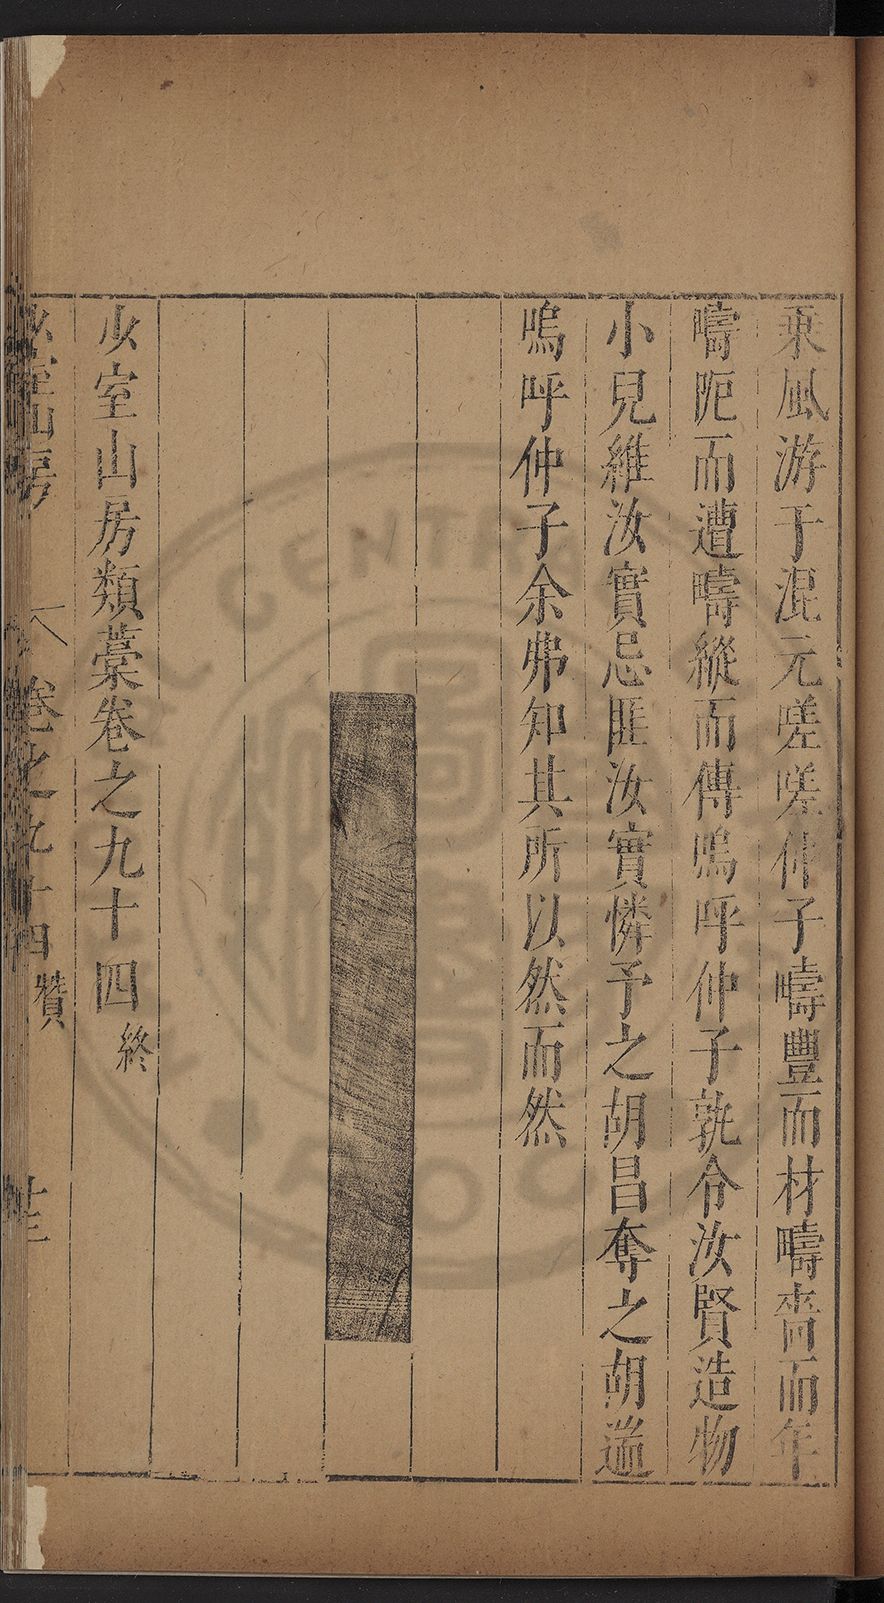 乗風游于混元嗟嗟仲子疇豐而材疇嗇而年
疇阨而遭疇縱而傳嗚呼仲子孰令汝賢造物
小兒維汝實忌匪汝實憐予之胡昌奪之胡遄
嗚呼仲子余弗知其所以然而然
少室山房類藁卷之九十四終
少室山房 卷之九十四 贊